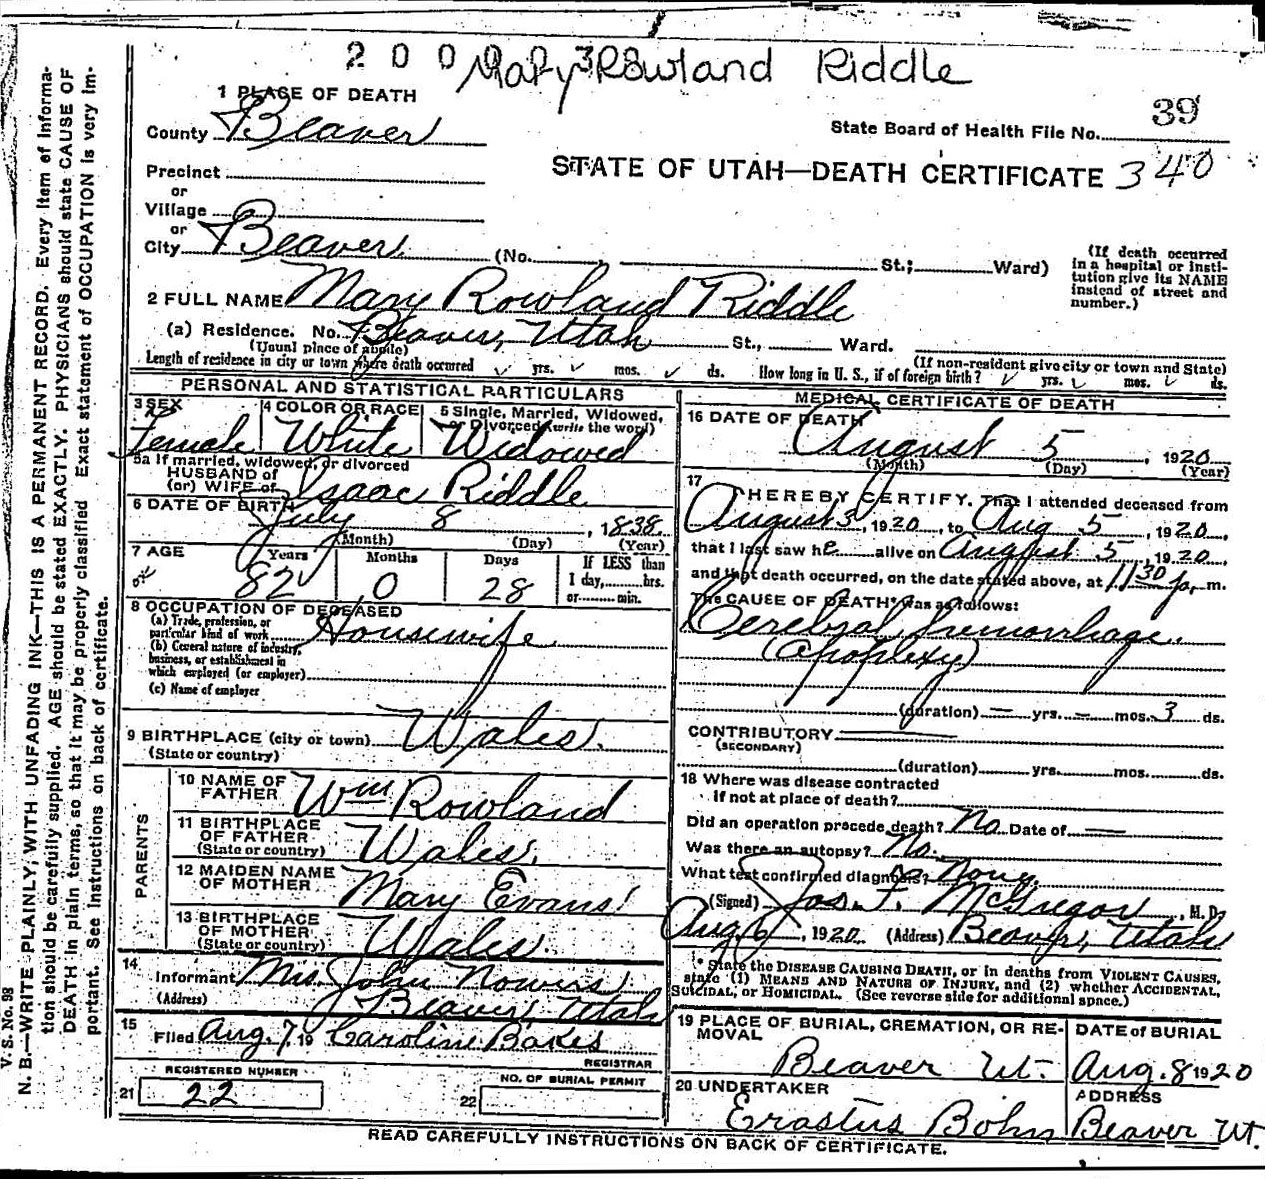 2 0 0 Mary Rowland Riddle
39
1 PLACE OF DEATH
County Beaver
State Board of Health File No.
STATE OF UTAH—DEATH CERTIFICATE 340
Precinct
or
Village
or
City Beaver (No. St.; Ward)
(If death occurred in a hospital or institution give its NAME instead of street and number.)
2 FULL NAME Mary Rowland Riddle
(a) Residence. No. Beaver, Utah St., Ward.
(Usual place of abode)
(If non-resident give city or town and State)
Length of residence in city or town where death occurred yrs. mos. ds. How long in U. S., if of foreign birth? yrs. mos. ds.
PERSONAL AND STATISTICAL PARTICULARS
3 SEX Female
4 COLOR OR RACE White
5 Single, Married, Widowed, or Divorced (write the word) Widowed
5a If married, widowed, or divorced
HUSBAND of
(or) WIFE of Isaac Riddle
6 DATE OF BIRTH July 8, 1838
(Month) (Day) (Year)
7 AGE Years Months Days If LESS than
82 0 28 1 day, hrs.
or min.
8 OCCUPATION OF DECEASED
(a) Trade, profession, or
particular kind of work Housewife
(b) General nature of industry,
business, or establishment in
which employed (or employer)
(c) Name of employer
9 BIRTHPLACE (city or town) Wales.
(State or country)
PARENTS
10 NAME OF FATHER Wm Rowland
11 BIRTHPLACE OF FATHER Wales.
(State or country)
12 MAIDEN NAME OF MOTHER Mary Evans
13 BIRTHPLACE OF MOTHER Wales.
(State or country)
14
Informant Mrs. John Nowers
(Address) Beaver, Utah
15
Filed Aug. 7, 19 Caroline Bakes
REGISTRAR
REGISTERED NUMBER
21 22
NO. OF BURIAL PERMIT
22
MEDICAL CERTIFICATE OF DEATH
16 DATE OF DEATH
August 5, 1920
(Month) (Day) (Year)
17
I HEREBY CERTIFY, That I attended deceased from
August 3, 1920, to Aug 5, 1920,
that I last saw he alive on August 5, 1920,
and that death occurred, on the date stated above, at 11 30 p. m.
The CAUSE OF DEATH* was as follows:
Cerebral hemorrhage.
(apoplexy)
(duration) — yrs. — mos. 3 ds.
CONTRIBUTORY
(SECONDARY)
(duration) yrs. mos. ds.
18 Where was disease contracted
If not at place of death?
Did an operation precede death? No Date of —
Was there an autopsy? No.
What test confirmed diagnosis? None
(Signed) Jas. F. McGregor, M. D.
Aug 6, 1920 (Address) Beaver, Utah
* State the DISEASE CAUSING DEATH, or in deaths from VIOLENT CAUSES,
state (1) MEANS AND NATURE OF INJURY, and (2) whether ACCIDENTAL,
SUICIDAL, or HOMICIDAL. (See reverse side for additional space.)
19 PLACE OF BURIAL, CREMATION, OR REMOVAL
Beaver Ut.
DATE of BURIAL
Aug. 8 1920
20 UNDERTAKER
Erastus Bohn
ADDRESS
Beaver Ut.
READ CAREFULLY INSTRUCTIONS ON BACK OF CERTIFICATE.
V. S. No. 98
N. B.—WRITE PLAINLY, WITH UNFADING INK—THIS IS A PERMANENT RECORD. Every item of informa-
tion should be carefully supplied. AGE should be stated EXACTLY. PHYSICIANS should state CAUSE OF
DEATH in plain terms, so that it may be properly classified. Exact statement of OCCUPATION is very im-
portant. See Instructions on back of certificate.